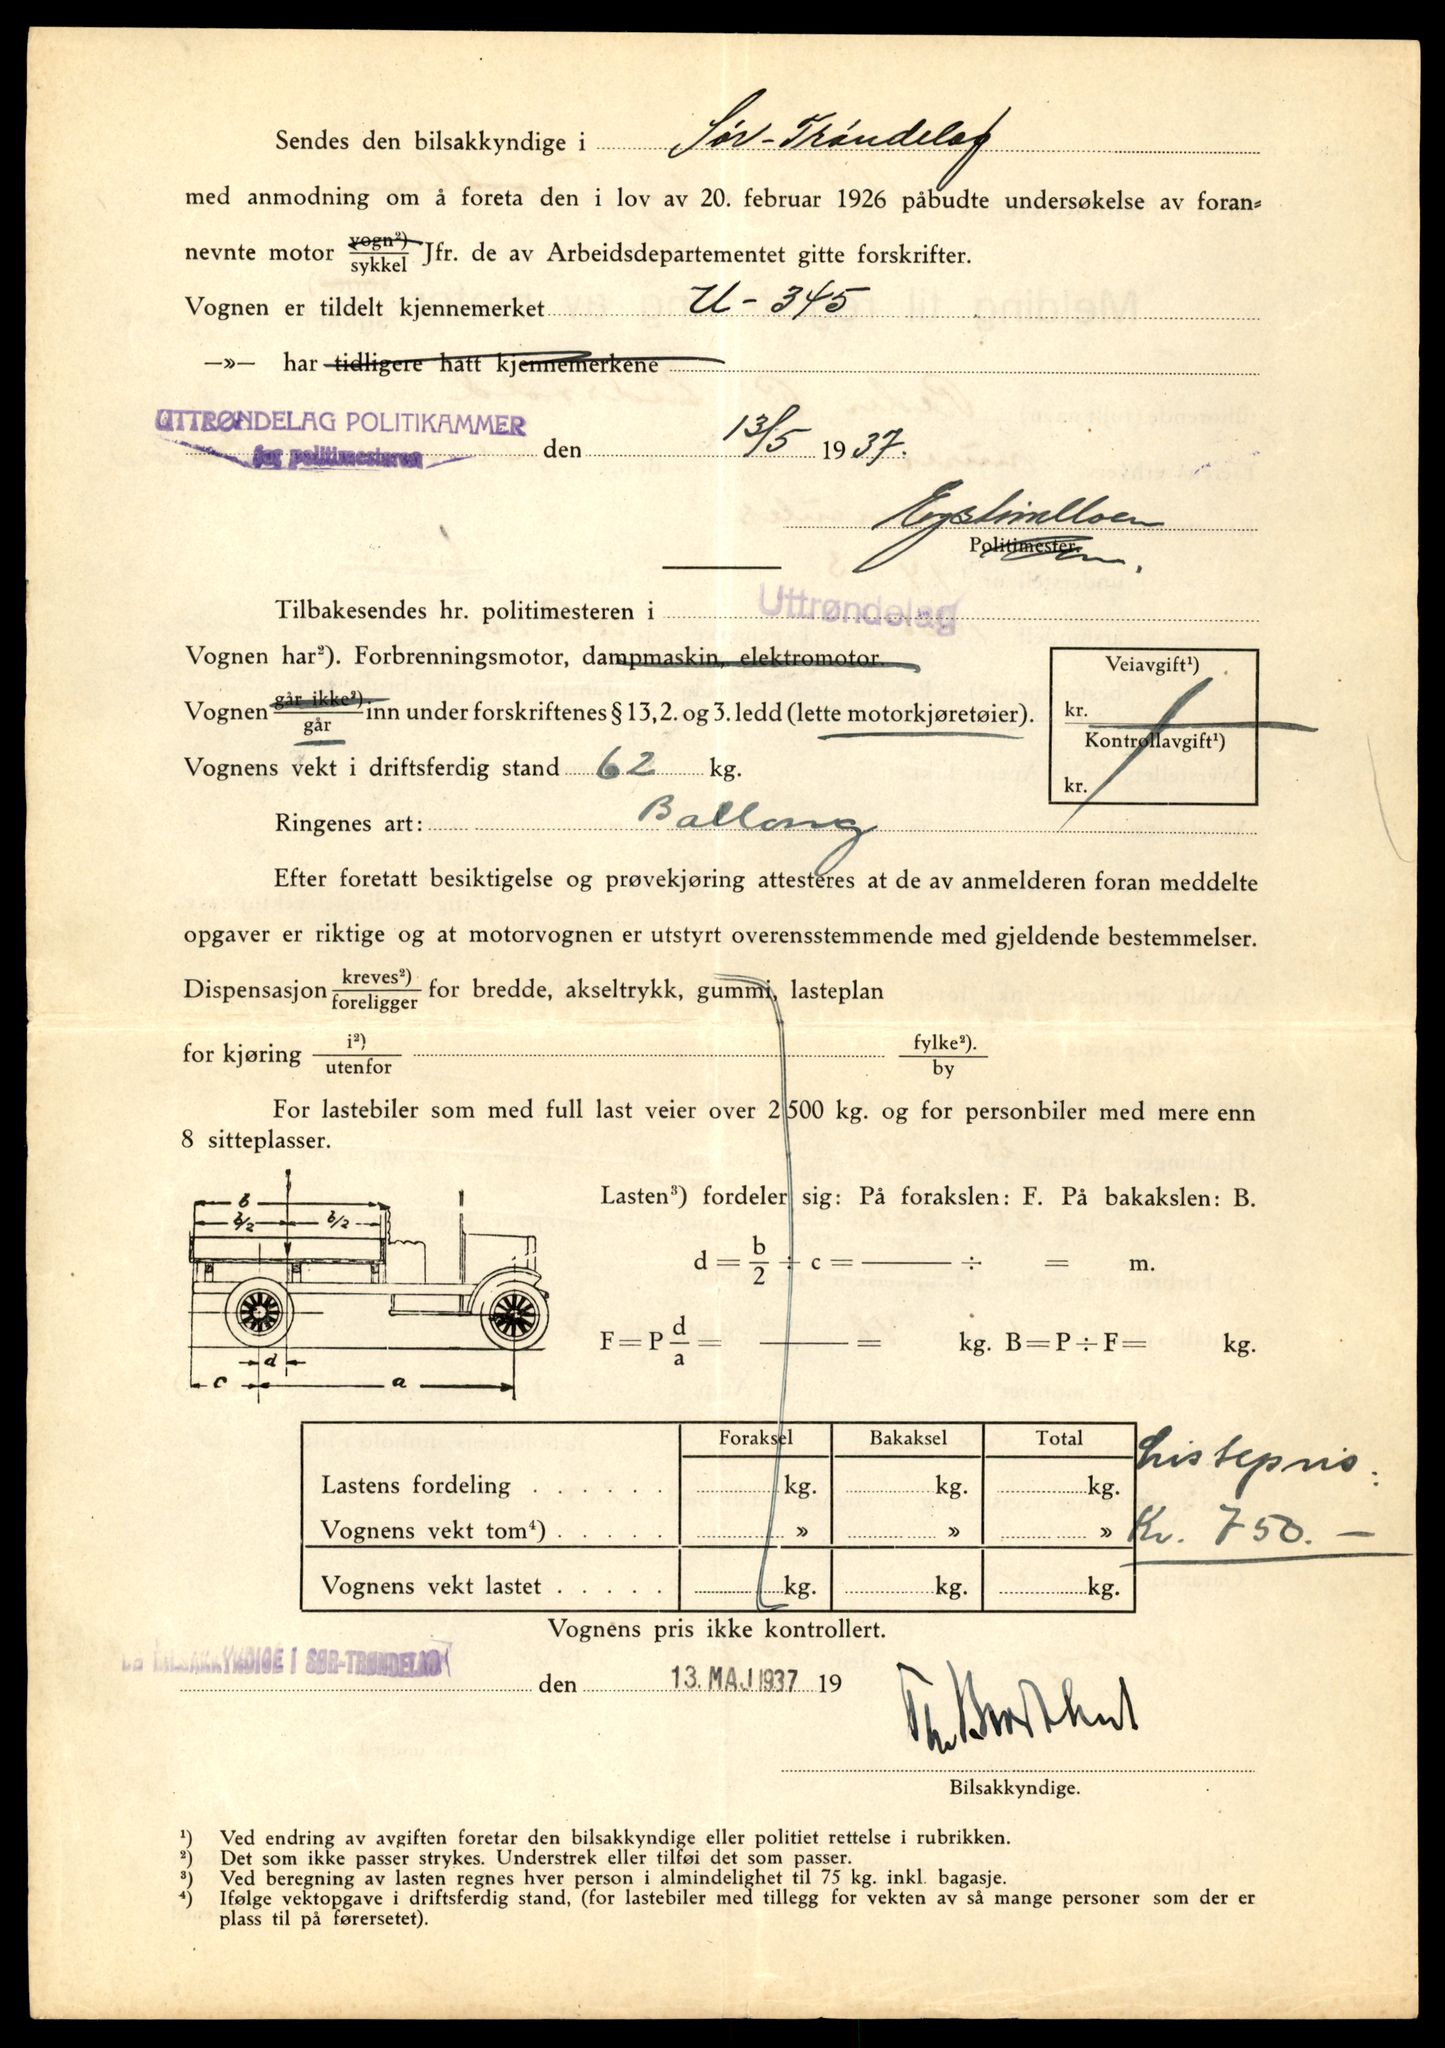 Sendes den bilsakkyndige i Sør-Trøndelag
med anmodning om å foreta den i lov av 20. februar 1926 påbudte undersøkelse av foran=
nevnte motor vogn²) / sykkel Jfr. de av Arbeidsdepartementet gitte forskrifter.
Vognen er tildelt kjennemerket U - 345
—»— har tidligere hatt kjennemerkene
UTTRØNDELAG POLITIKAMMER
for politimesteren den 13/5 1937.
Politimester.
Tilbakesendes hr. politimesteren i Uttrøndelag
Vognen har²). Forbrenningsmotor, dampmaskin, elektromotor.
Veiavgift¹)
Vognen går ikke²). / går inn under forskriftenes § 13, 2. og 3. ledd (lette motorkjøretøier).
kr.
Kontrollavgift¹)
Vognens vekt i driftsferdig stand 62 kg.
kr.
Ringenes art: Ballong
Efter foretatt besiktigelse og prøvekjøring attesteres at de av anmelderen foran meddelte
opgaver er riktige og at motorvognen er utstyrt overensstemmende med gjeldende bestemmelser.
Dispensasjon kreves²) / foreligger for bredde, akseltrykk, gummi, lasteplan
for kjøring i²) / utenfor fylke²). / by
For lastebiler som med full last veier over 2500 kg. og for personbiler med mere enn
8 sitteplasser.
b
b/2 b/2
d
c a
Lasten³) fordeler sig: På forakslen: F. På bakakslen: B.
d = b/2 ÷ c = ——— ÷ = m.
F = P d/a = ——— = kg. B = P ÷ F = kg.
Foraksel Bakaksel Total
Lastens fordeling . . . . . . kg. kg. kg.
Vognens vekt tom⁴) . . . . . » » »
Vognens vekt lastet . . . . . kg. kg. kg.
Listepris:
Kr. 750.—
Vognens pris ikke kontrollert.
DE BILSAKKYNDIGE I SØR-TRØNDELAG
den 13. MAJ 1937 19
Bilsakkyndige.
¹) Ved endring av avgiften foretar den bilsakkyndige eller politiet rettelse i rubrikken.
²) Det som ikke passer strykes. Understrek eller tilføi det som passer.
³) Ved beregning av lasten regnes hver person i almindelighet til 75 kg. inkl. bagasje.
⁴) Ifølge vektopgave i driftsferdig stand, (for lastebiler med tillegg for vekten av så mange personer som der er
plass til på førersetet).